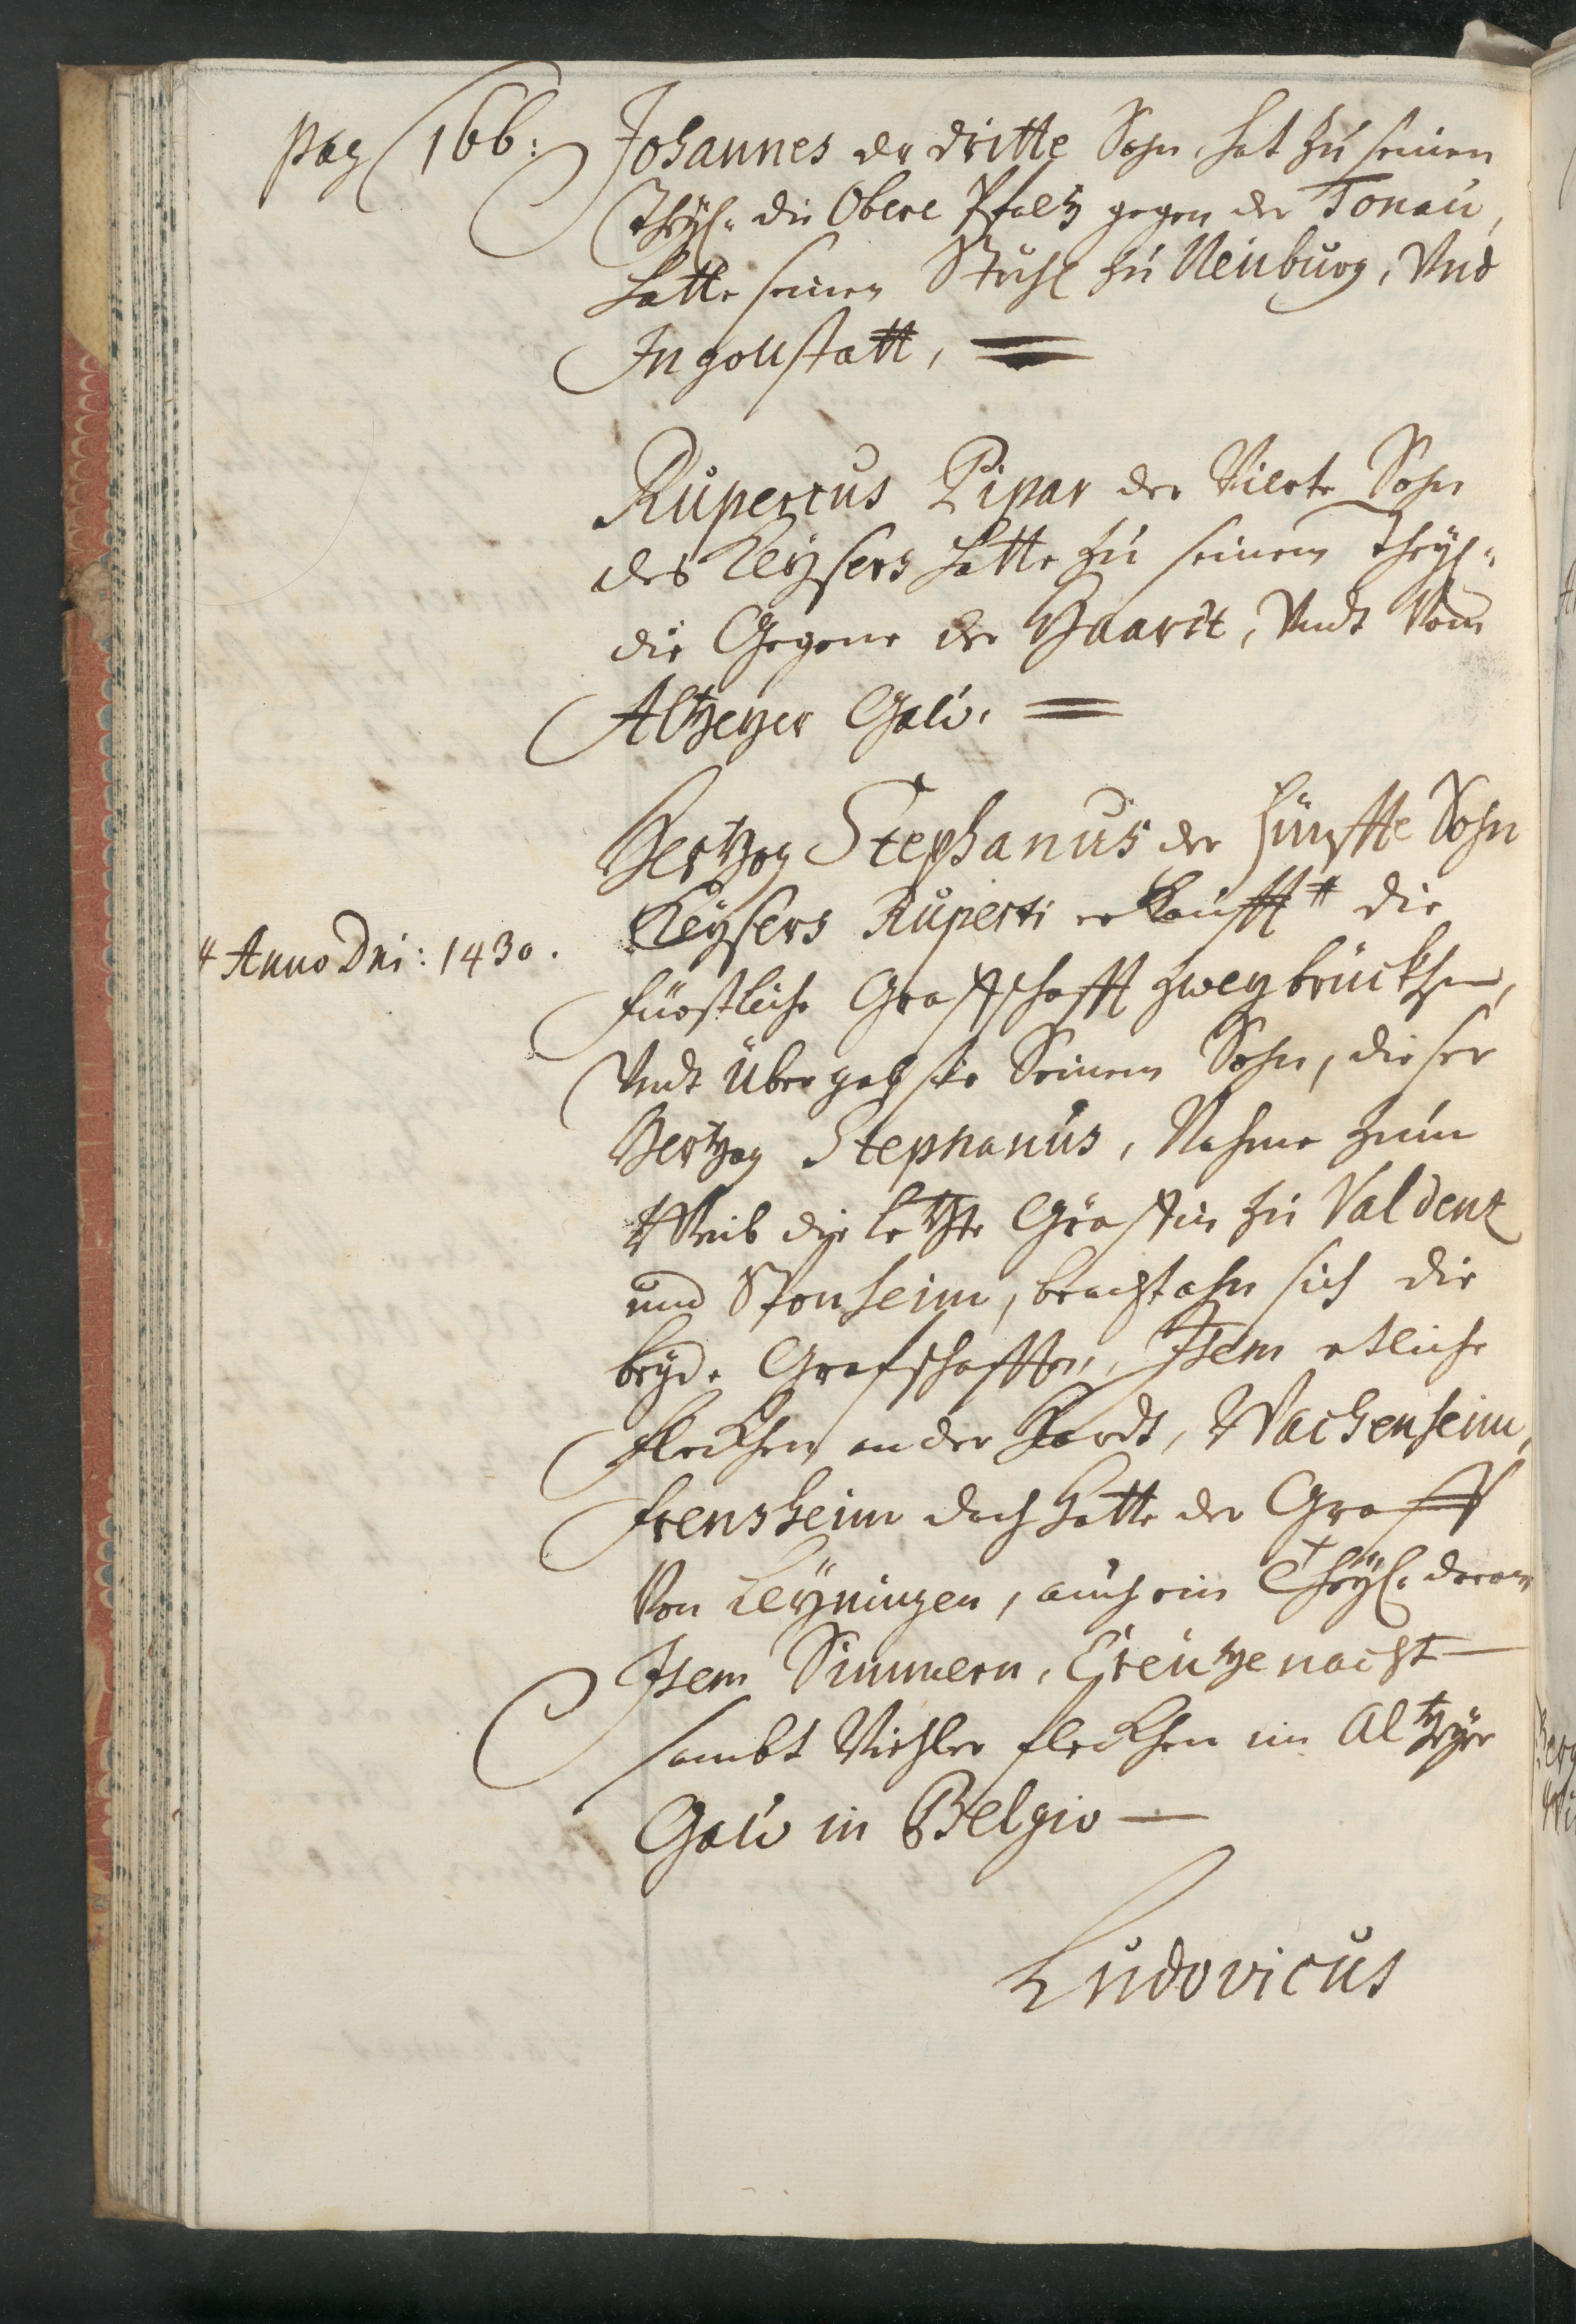 pag 166:
Johannes der dritte Sohn, hat zu seinen
Theÿl die Obere Pfaltz gegen der Tonau,
hatte seinen Stuhl zu Neuburg, Vnd
Ingollstatt,
Rupertus Pipar der Vierte Sohn
des Keÿsers hatte zu seinem Theÿl
die Gegene der Haardt, Vndt Vom
Altzeyer Gaŭ.
Hertzog Stephanus der fünffte Sohn
Keÿsers Ruperti erkaufft # die
# Anno Dni: 1430.
fürstliche Graffschafft Zweybrückhen,
Vndt übergab sie Seinem Sohn, dieser
Hertzog Stephanus, Nahme zum
Weib die letzte Gräffin zu Valdentz
und Sponheim, bracht ahn sich die
beÿde Grafschafften, Item etliche
fleckhen an der Hardt, Wachenheim,
frensheim doch hatte der Graff
Von Leÿningen, auch ein Theÿl daran
Item Simmern, Creutzenacht
sambt Viehler fleckhen im Altzeÿer
Gaŭ in Belgio
Ludovicus